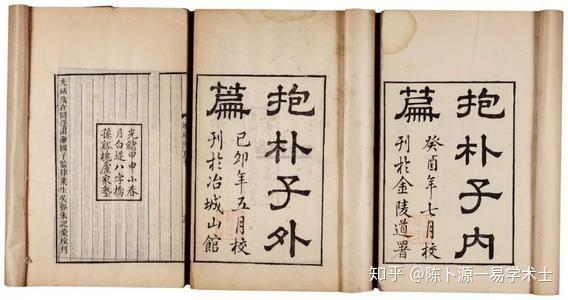 抱朴子内
篇
癸酉年七月校
刊於金陵道署
抱朴子外
篇
己卯年五月校
刊於冶城山館
光緒甲申小春
月白堤八字橋
孫谿槐廬家塾
光緒歲在閼逢涒灘國子監肄業生吳縣朱記榮校刊
知乎 @陈卜源一易学术士